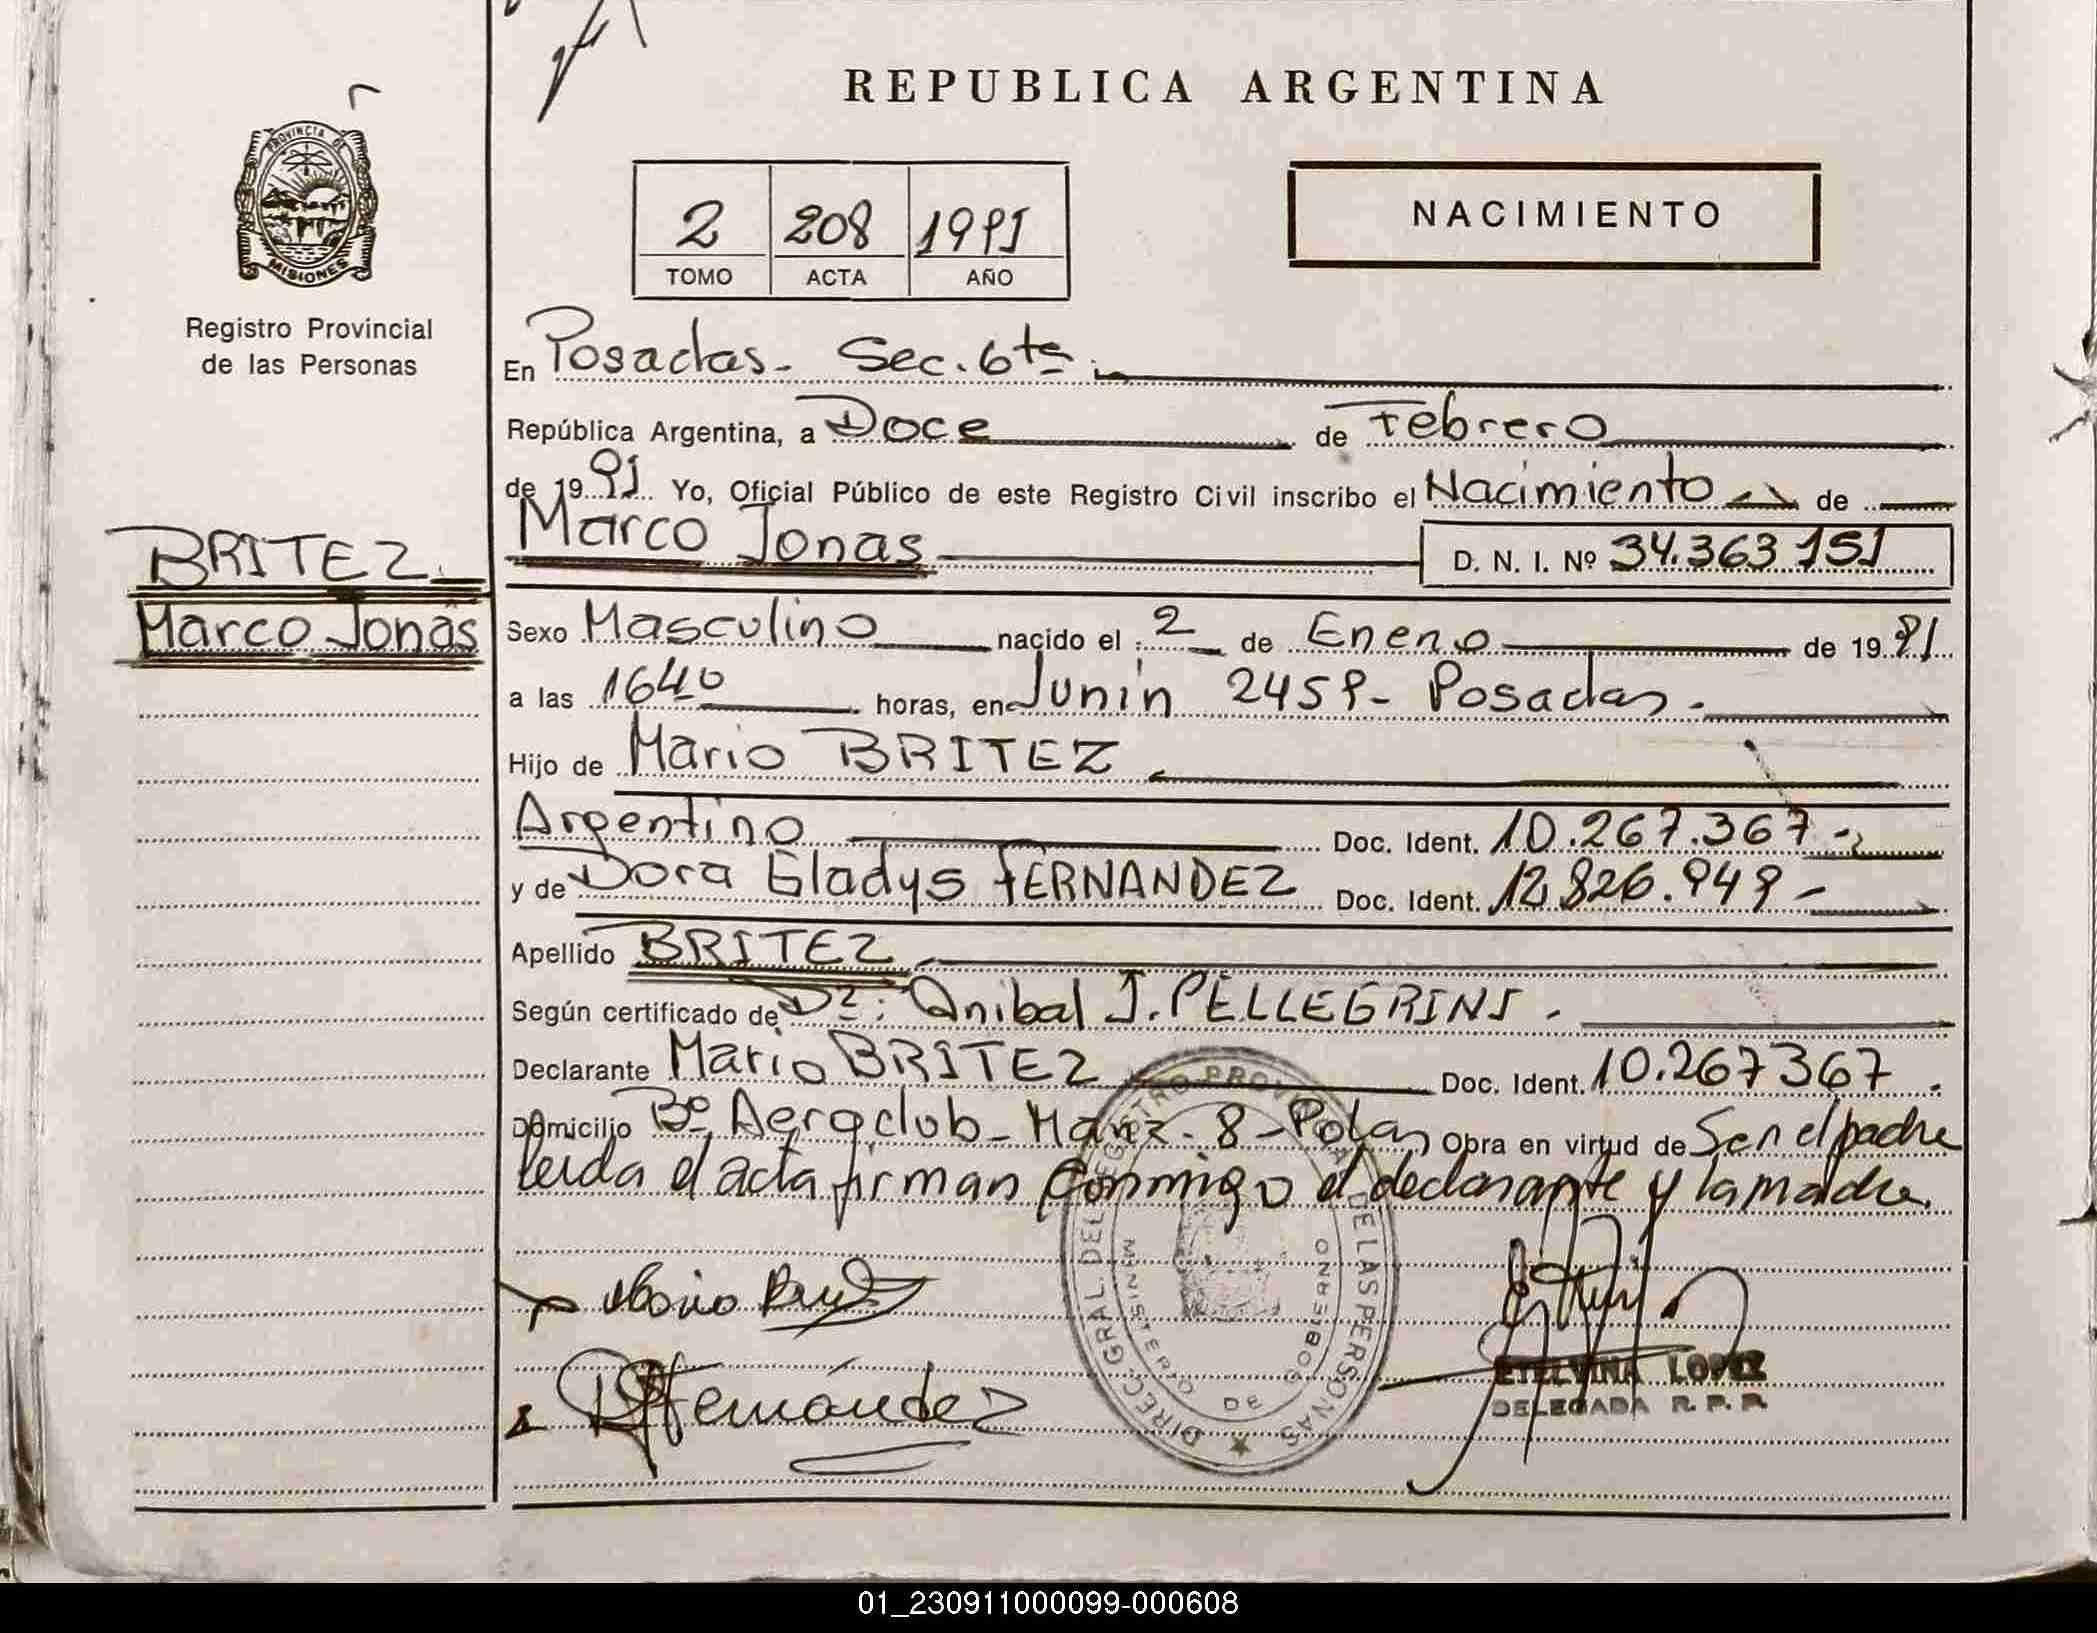 REPUBLICA ARGENTINA
PROVINCIA DE
MISIONES
Registro Provincial
de las Personas
2 208 1991
TOMO ACTA AÑO
NACIMIENTO
BRITEZ
Marco Jonas
En Posadas - Sec. 6ta
República Argentina, a Doce de Febrero
de 1991 Yo, Oficial Público de este Registro Civil inscribo el Nacimiento de
Marco Jonas D. N. I. Nº 34.363 151
Sexo Masculino nacido el 2 de Enero de 1991
a las 1640 horas, en Junin 2459 - Posadas.
Hijo de Mario BRITEZ
Argentino Doc. Ident. 10.267.367-
y de Dora Gladys FERNANDEZ Doc. Ident. 12.826.949-
Apellido BRITEZ
Según certificado de Dr: Anibal J. PELLEGRINI.
Declarante Mario BRITEZ Doc. Ident. 10.267367.
Domicilio Bº Aeroclub - Manz - 8 - Obra en virtud de Ser el padre
leida el acta firman conmigo el declarante y la madre.
Mario
Fernández
DIREC. GRAL. DEL REGISTRO PROVINCIAL DE LAS PERSONAS
MINISTERIO DE GOBIERNO
ETELVINA LOPEZ
DELEGADA R. P. P.
01_230911000099-000608